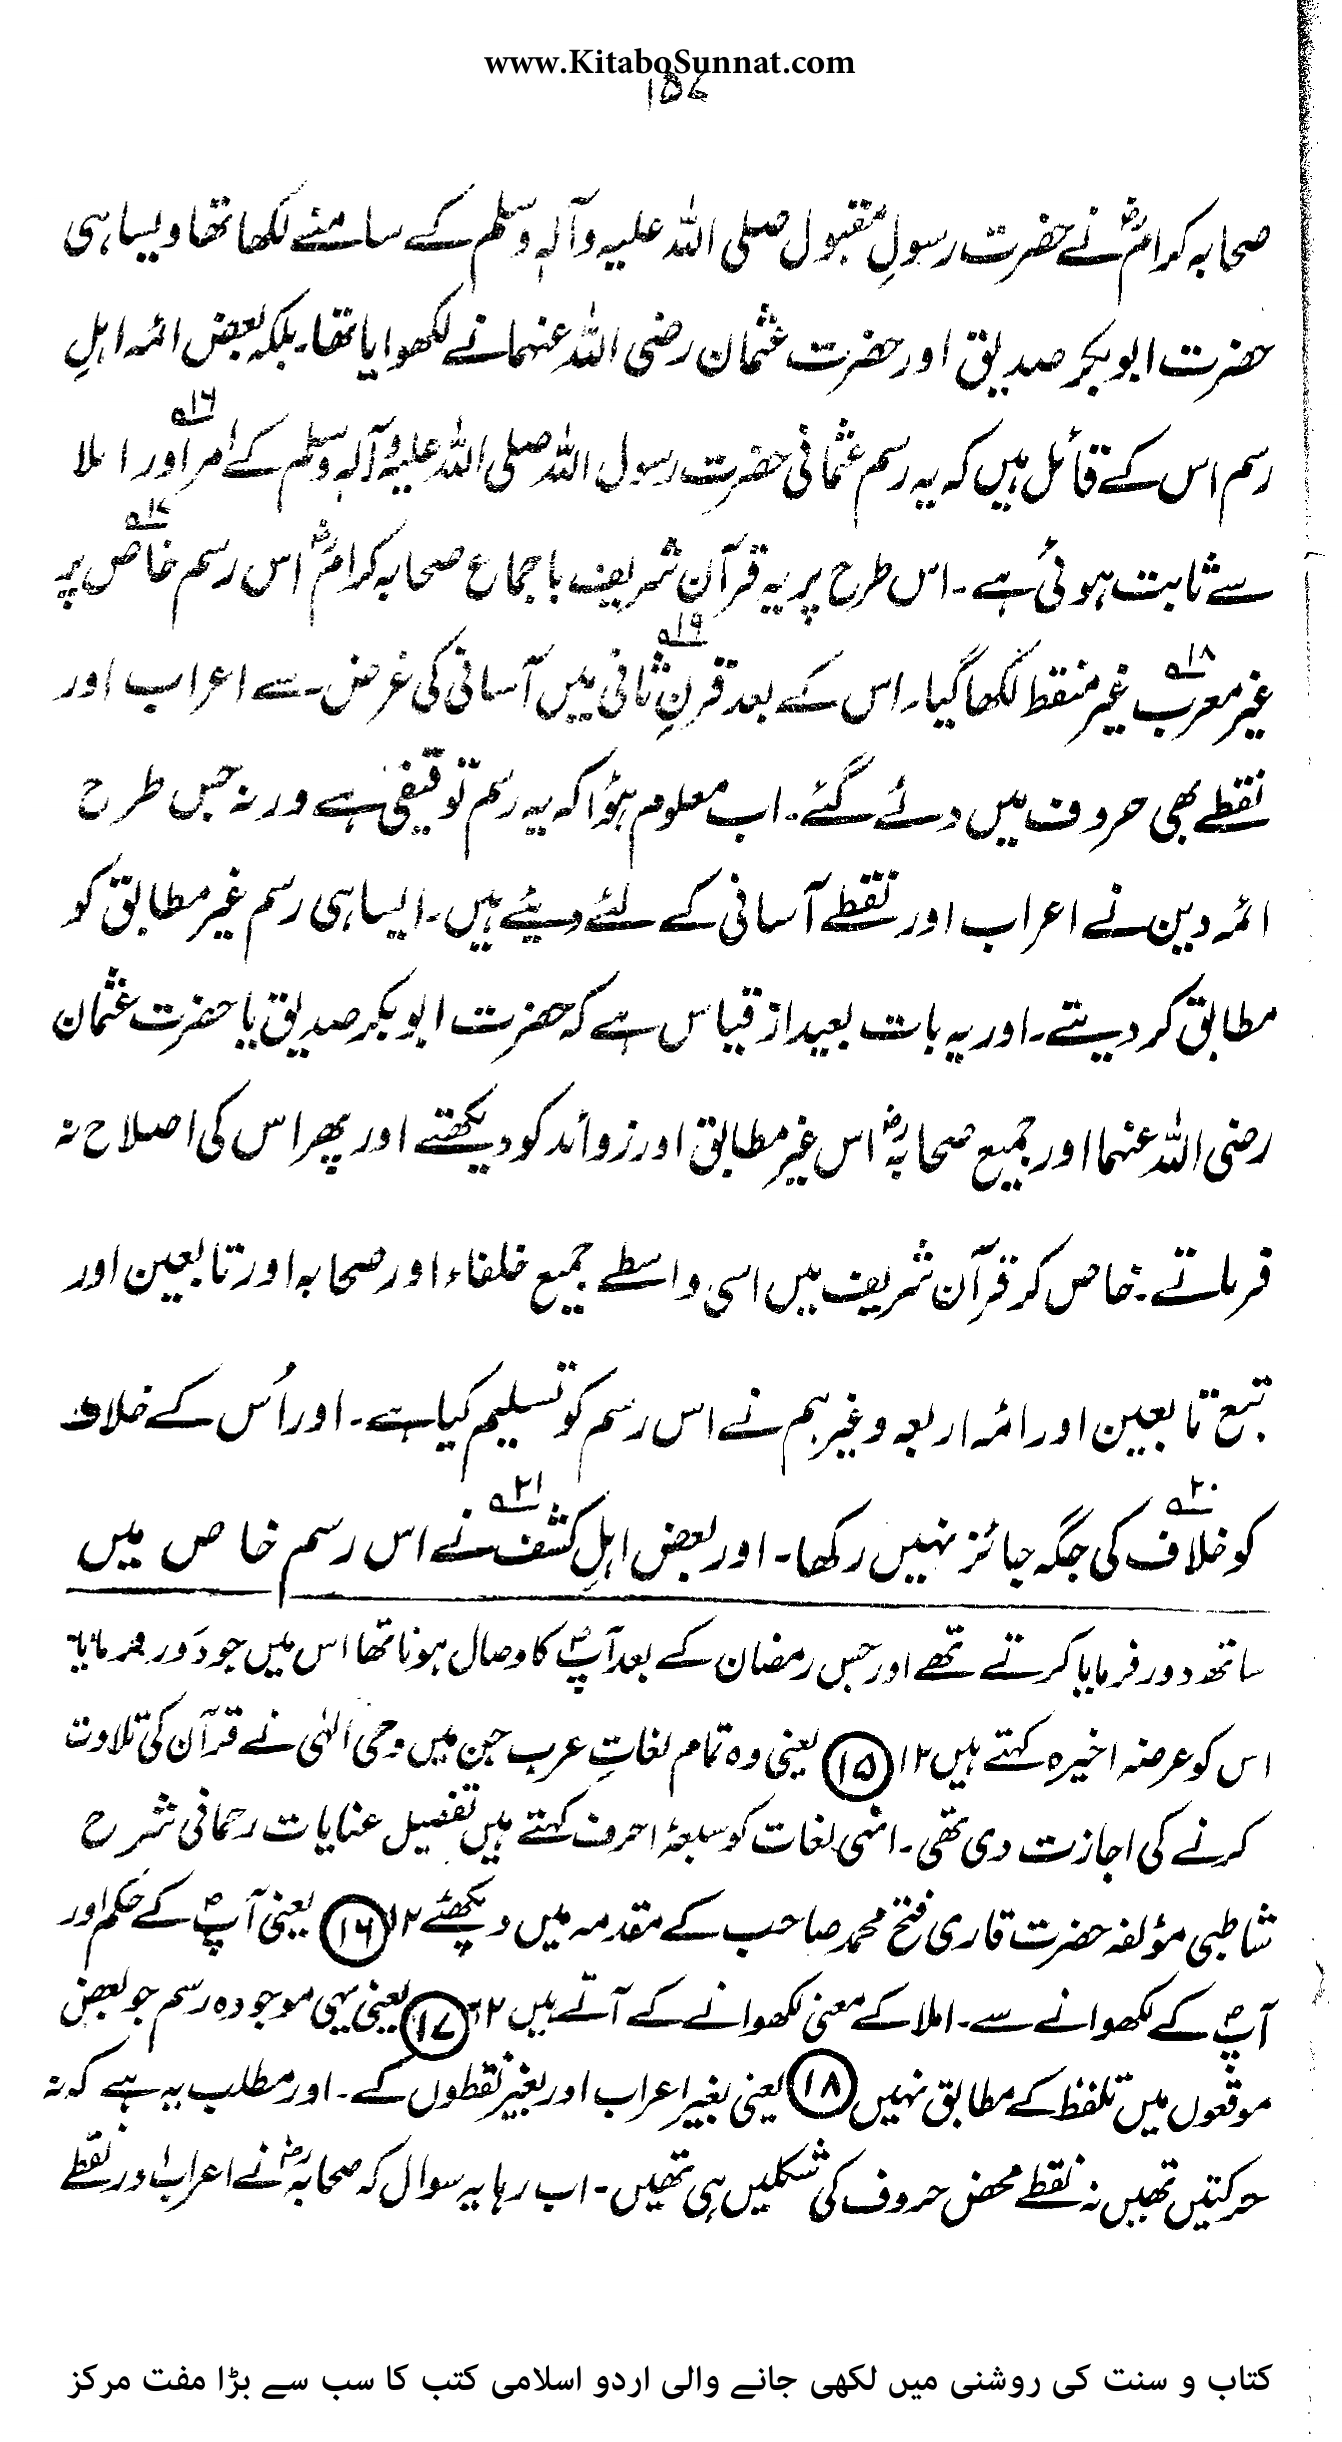 www.KitaboSunnat.com
۱۵۷
صحابہ کرامؓ نے حضرت رسولِ مقبول صلی اللہ علیہ وآلہٖ وسلم کے سامنے لکھا تھا ویسا ہی
حضرت ابوبکر صدیق اور حضرت عثمان رضی اللہ عنہما نے لکھوایا تھا۔ بلکہ بعض ائمہ اہلِ
رسم اس کے قائل ہیں کہ یہ رسم عثمانی حضرت رسول اللہ صلی اللہ علیہ وآلہٖ وسلم کے امر۱۶ اور املا
سے ثابت ہوئی ہے۔ اس طرح پر یہ قرآن شریف باجماع صحابہ کرامؓ اس رسم خاص۱۷ پر
غیر معرب۱۸ غیر منقط لکھا گیا۔ اس کے بعد قرنِ ثانی۱۹ میں آسانی کی غرض سے اعراب اور
نقطے بھی حروف میں دئے گئے۔ اب معلوم ہؤا کہ یہ رسم توقیفی ہے ورنہ جس طرح
ائمہ دین نے اعراب اور نقطے آسانی کے لئے دیئے ہیں۔ ایسا ہی رسم غیر مطابق کو
مطابق کر دیتے۔ اور یہ بات بعید از قیاس ہے کہ حضرت ابوبکر صدیق یا حضرت عثمان
رضی اللہ عنہما اور جمیع صحابہؓ اس غیر مطابق اور زوائد کو دیکھتے اور پھر اس کی اصلاح نہ
فرماتے۔ خاص کر قرآن شریف میں اسی واسطے جمیع خلفاء اور صحابہ اور تابعین اور
تبع تابعین اور ائمہ اربعہ وغیرہم نے اس رسم کو تسلیم کیا ہے۔ اور اُس کے خلاف
کو خلاف۲۰ کی جگہ جائز نہیں رکھا۔ اور بعض اہلِ کشف۲۱ نے اس رسم خاص میں
ساتھ دور فرمایا کرتے تھے اور جس رمضان کے بعد آپؐ کا وصال ہونا تھا اس میں جو دَور فرمایا
اس کو عرضہ اخیرہ کہتے ہیں ۱۲ (۱۵) یعنی وہ تمام لغاتِ عرب جن میں وحی الٰہی نے قرآن کی تلاوت
کرنے کی اجازت دی تھی۔ انہی لغات کو سبعۂ احرف کہتے ہیں تفصیل عنایات رحمانی شرح
شاطبی مؤلفہ حضرت قاری فتح محمد صاحب کے مقدمہ میں دیکھئے ۱۲ (۱۶) یعنی آپؐ کے حکم اور
آپؐ کے لکھوانے سے۔ املا کے معنی لکھوانے کے آتے ہیں ۱۲ (۱۷) یعنی یہی موجودہ رسم جو بعض
موقعوں میں تلفظ کے مطابق نہیں (۱۸) یعنی بغیر اعراب اور بغیر نقطوں کے۔ اور مطلب یہ ہے کہ نہ
حرکتیں تھیں نہ نقطے محض حروف کی شکلیں ہی تھیں۔ اب رہا یہ سوال کہ صحابہؓ نے اعراب اور نقطے
کتاب و سنت کی روشنی میں لکھی جانے والی اردو اسلامی کتب کا سب سے بڑا مفت مرکز